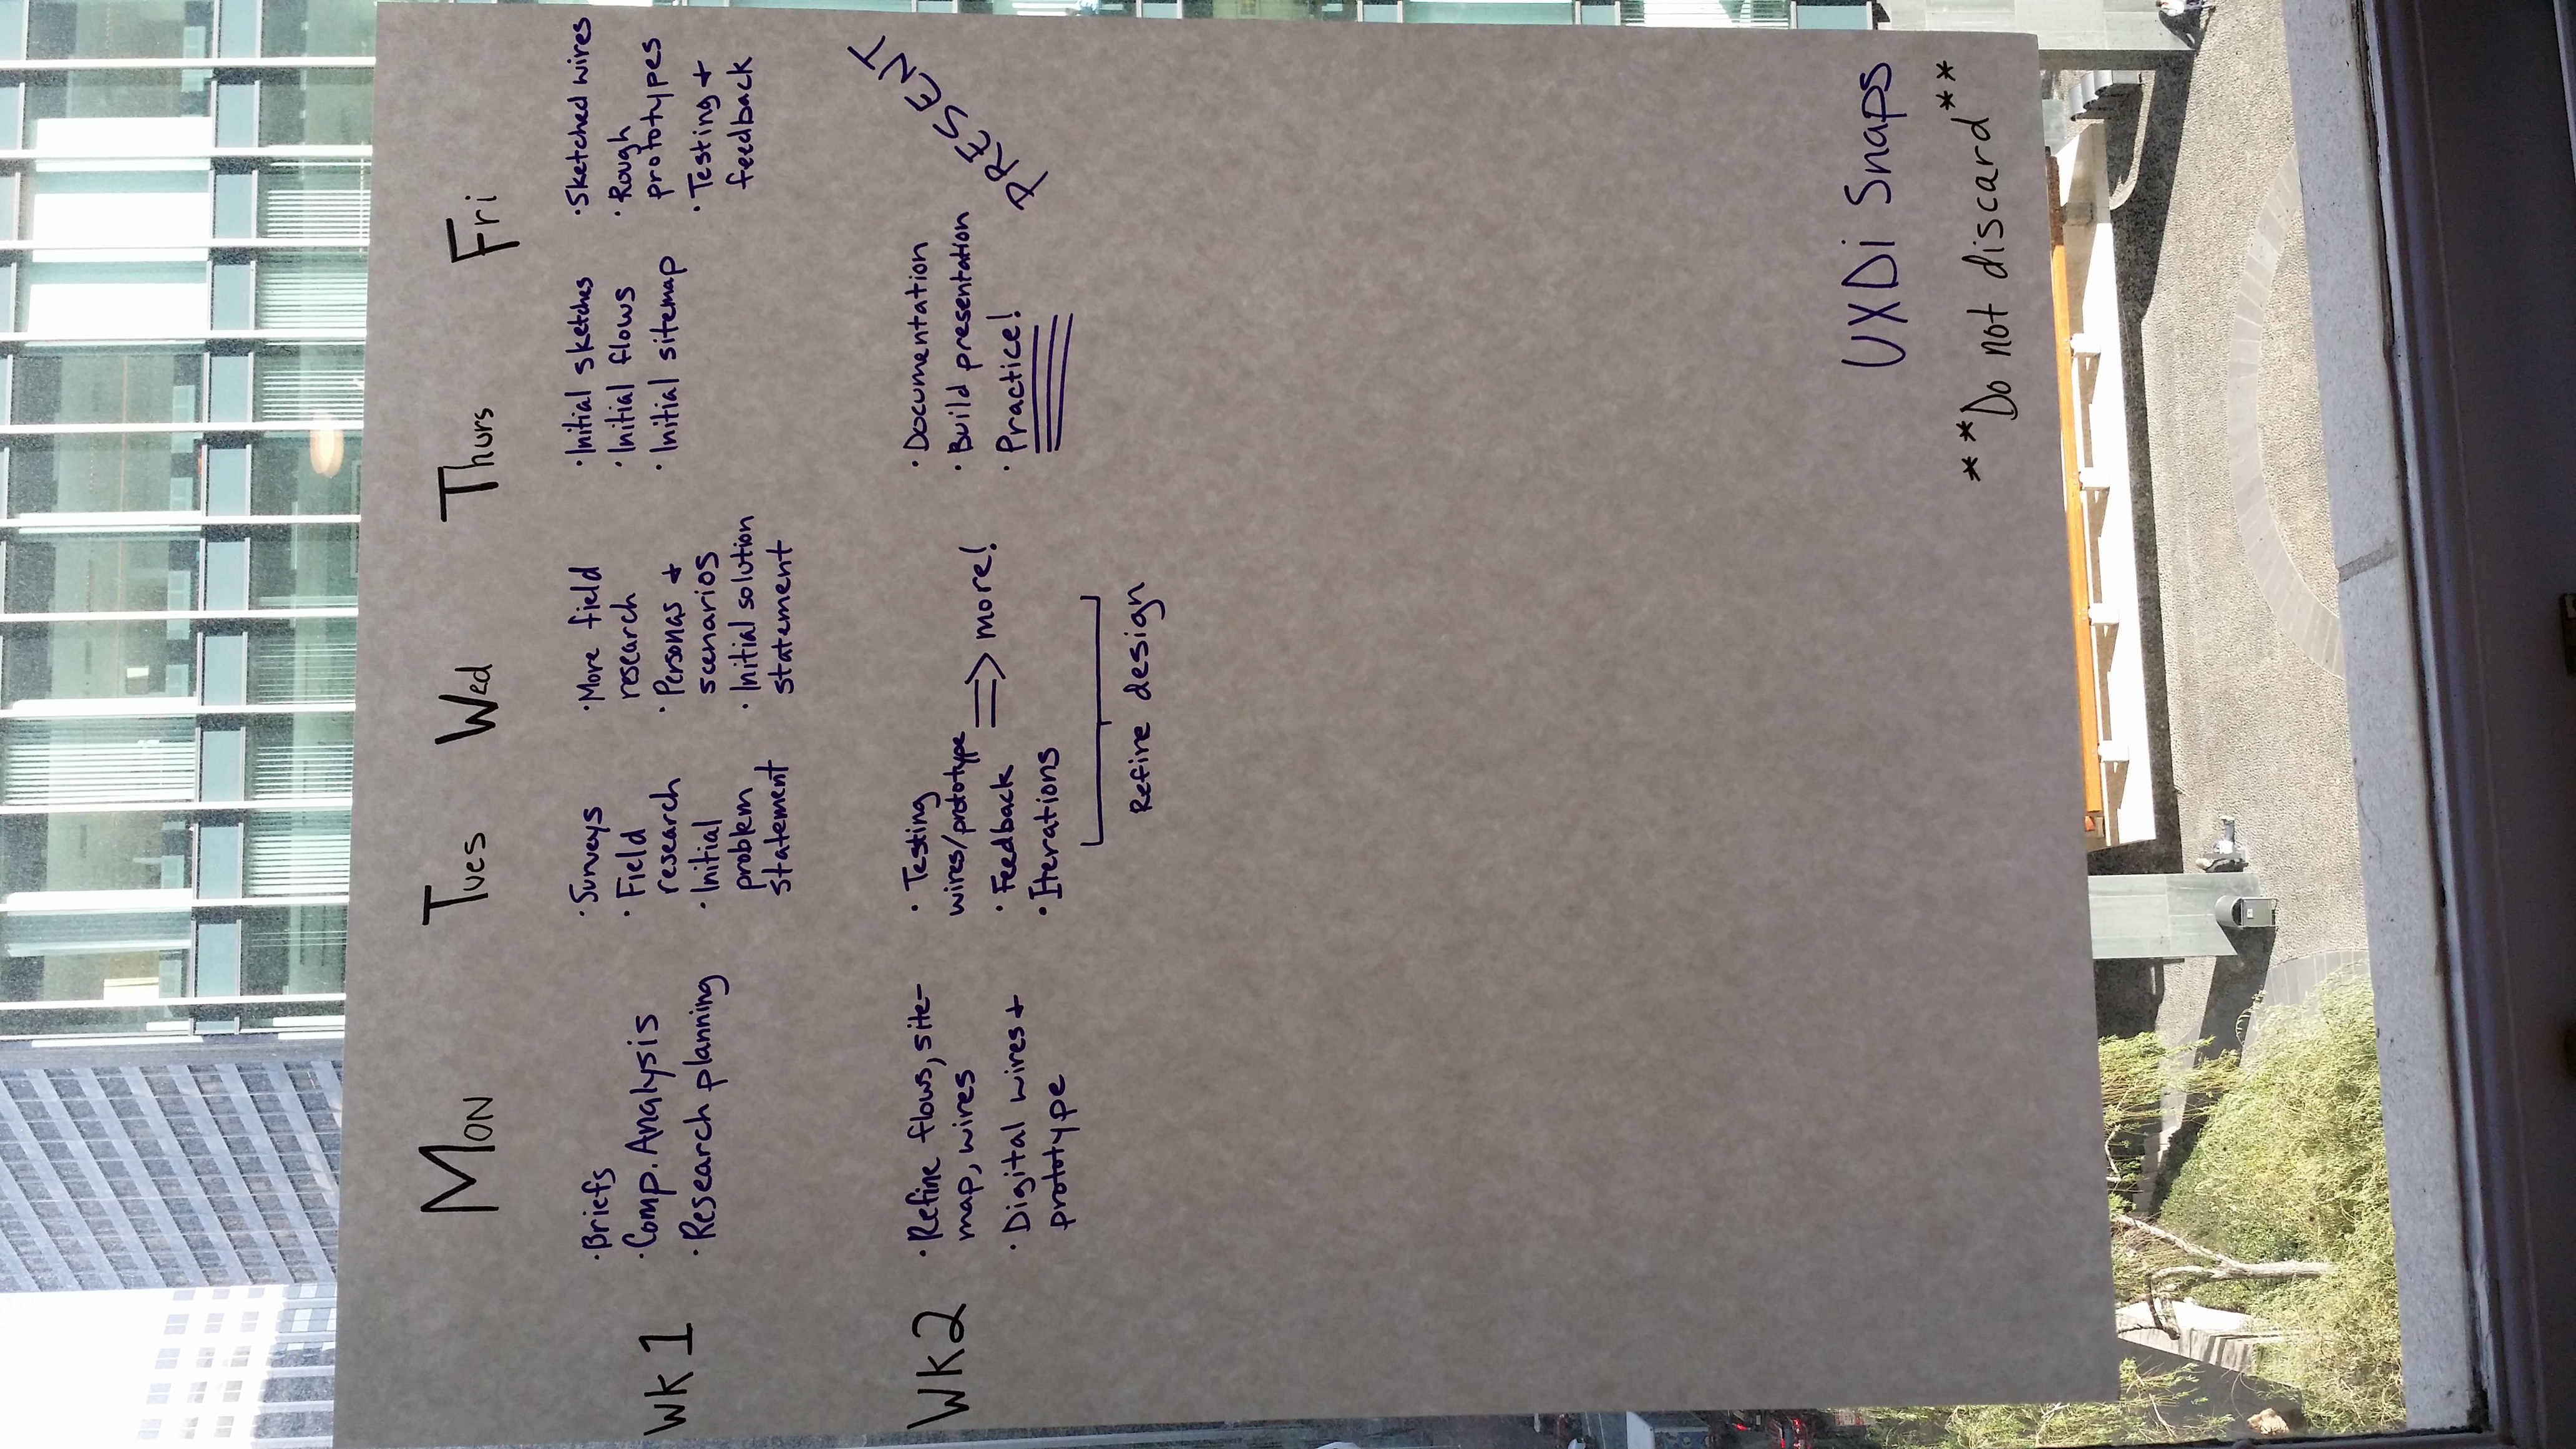 Mon Tues Wed Thurs Fri
Wk 1
·Briefs
·Comp. Analysis
·Research planning
·Surveys
·Field
research
·Initial
problem
statement
·More field
research
·Personas +
scenarios
·Initial solution
statement
·Initial sketches
·Initial flows
·Initial sitemap
·Sketched wires
·Rough
prototypes
·Testing +
feedback
Wk2
·Refine flows, site-
map, wires
·Digital wires +
prototype
·Testing
wires/prototype
·Feedback
·Iterations
⇒ more!
Refine design
·Documentation
·Build presentation
·Practice!
PRESENT
UXDi Snaps
**Do not discard**